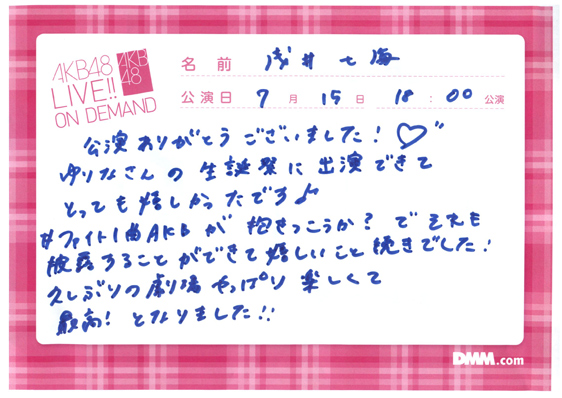 AKB48
LIVE!!
ON DEMAND
AKB
48
名前 浅井七海
公演日 7月15日 18:00公演
公演ありがとうございました!♡"
ゆりなさんの生誕祭に出演できて
とっても嬉しかったです♪
#ファイト1曲AKBが 抱きつこうか? でそれも
披露することができて嬉しいこと続きでした!
久しぶりの劇場やっぱり楽しくて
最高!となりました!!
DMM.com